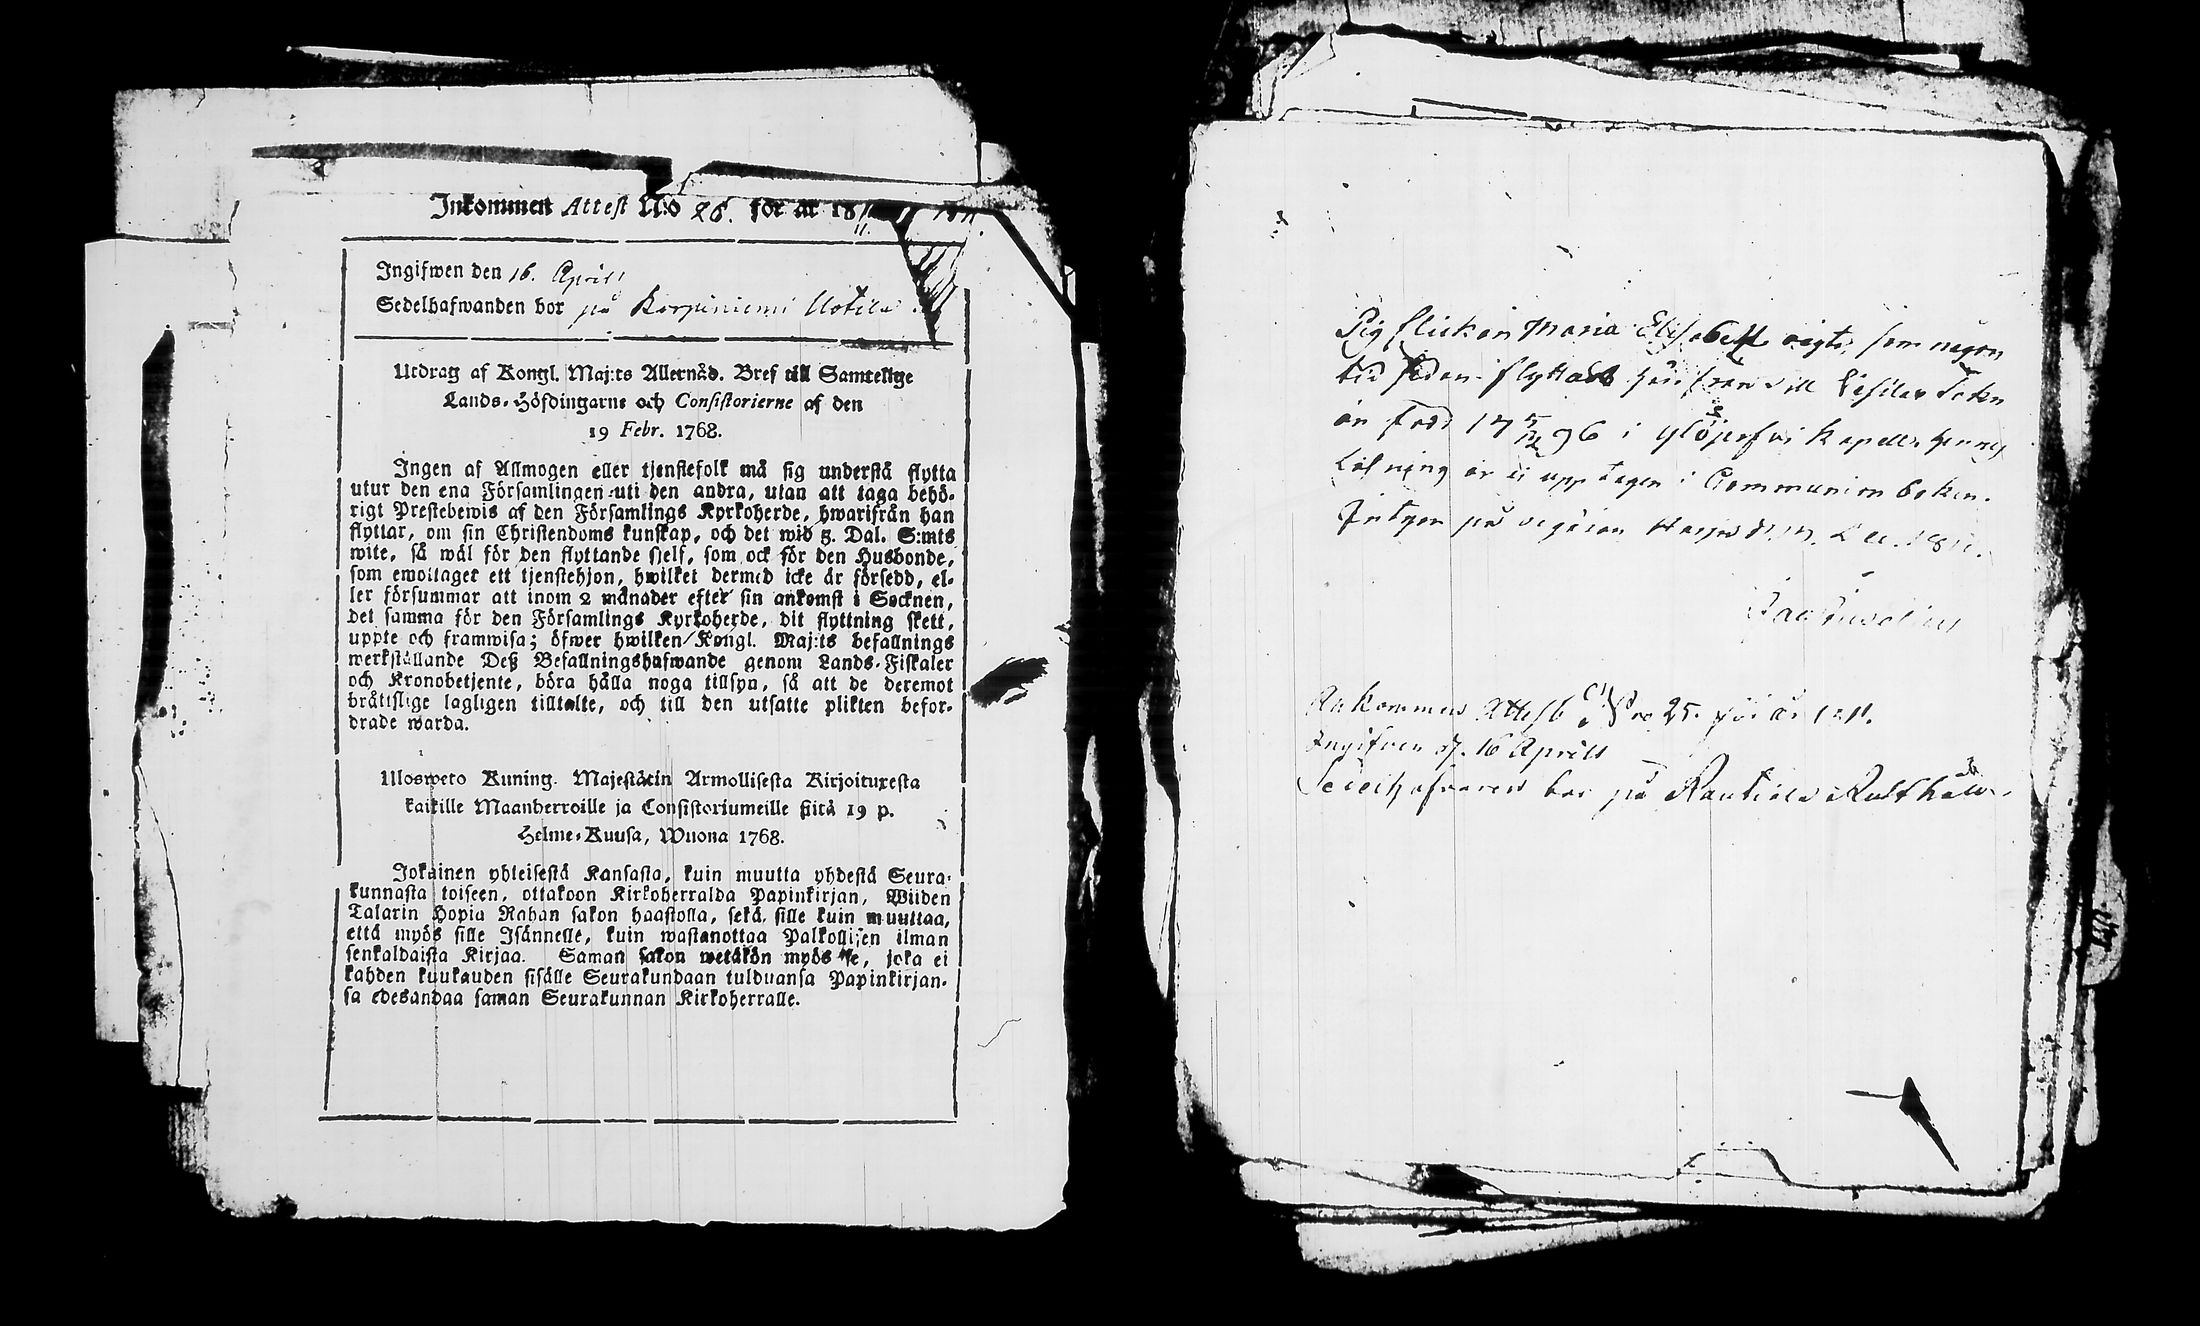 Inkommen Attest N:o 26. för år 18
Ingifwen den 16. Aprill
Sedelhafwanden bor på Korpiniemi Uotila
Utdrag af Kongl. Maj:ts Allernåd. Bref till Samtelige
Lands-Höfdingarne och Consistorierne af den
19 Febr. 1768.
Ingen af Allmogen eller tjenstefolk må sig understå flytta
utur den ena Församlingen uti den andra, utan att taga behö-
rigt Prestebewis af den Församlings Kyrkoherde, hwarifrån han
flyttar, om sin Christendoms kunskap, och det wid 5. Dal. S:mts
wite, så wäl för den flyttande sjelf, som ock för den Husbonde,
som emottaget ett tjenstehjon, hwilket dermed icke är försedd, el-
ler försummar att inom 2 månader efter sin ankomst i Socknen,
det samma för den Församlings Kyrkoherde, dit flyttning skett,
uppte och framwisa; öfwer hwilken Kongl. Maj:ts befallnings
werkställande Deß Befallningshafwande genom Lands-Fiskaler
och Kronobetjente, böra hålla noga tillsyn, så att de deremot
bråttslige lagligen tilltalte, och till den utsatte plikten befor-
drade warda.
Ulosweto Kuning. Majestätin Armollisesta Kirjoituxesta
kaikille Maanherroille ja Consistoriumeille siitä 19 p.
Helme-Kuusa, Wuona 1768.
Jokainen yhteisestä Kansasta, kuin muutta yhdestä Seura-
kunnasta toiseen, ottakoon Kirkoherralda Papinkirjan, Wiiden
Talarin Hopia Rahan sakon haastolla, sekä sille kuin muuttaa,
että myös sille Isännelle, kuin wastanottaa Palkollisen ilman
senkaldaista Kirjaa. Saman sakon wetäkön myös se, joka ei
kahden kuukauden sisälle Seurakundaan tulduansa Papinkirjan-
sa edesandaa saman Seurakunnan Kirkoherralle.
Pig flickan Maria Elisabeth som någon
tid sedan flyttadt härifrån till
är född 17 96 i Ylöjerfvi Kapell hennes
Läsning är ei upptagen i Communion boken.
Intygar på begäran
Ankommen Attest No 25. för år 1811.
Ingifven d. 16 Aprill
Sedelhafvaren bor på Rautiala